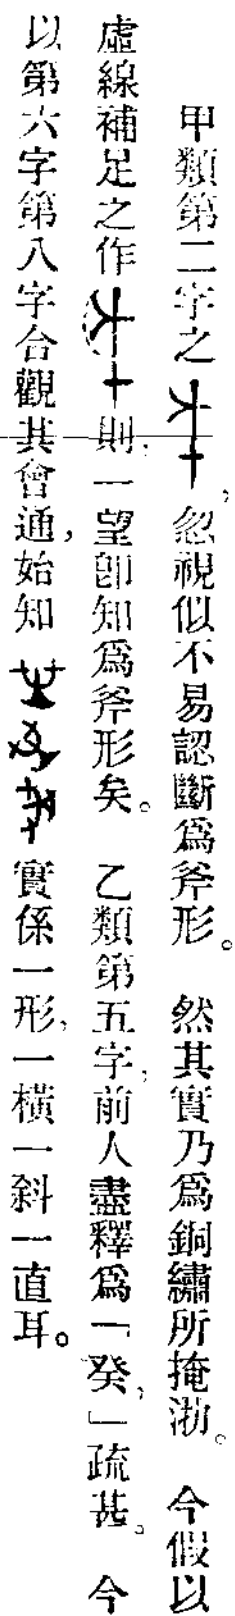 甲類第二字之,忽視似不易認斷爲斧形。然其實乃爲銅繡所掩泐。今假以
虛線補足之作則,一望卽知爲斧形矣。乙類第五字,前人盡釋爲「癸,」疏甚。今
以第六字第八字合觀其會通,始知實係一形,一橫一斜一直耳。